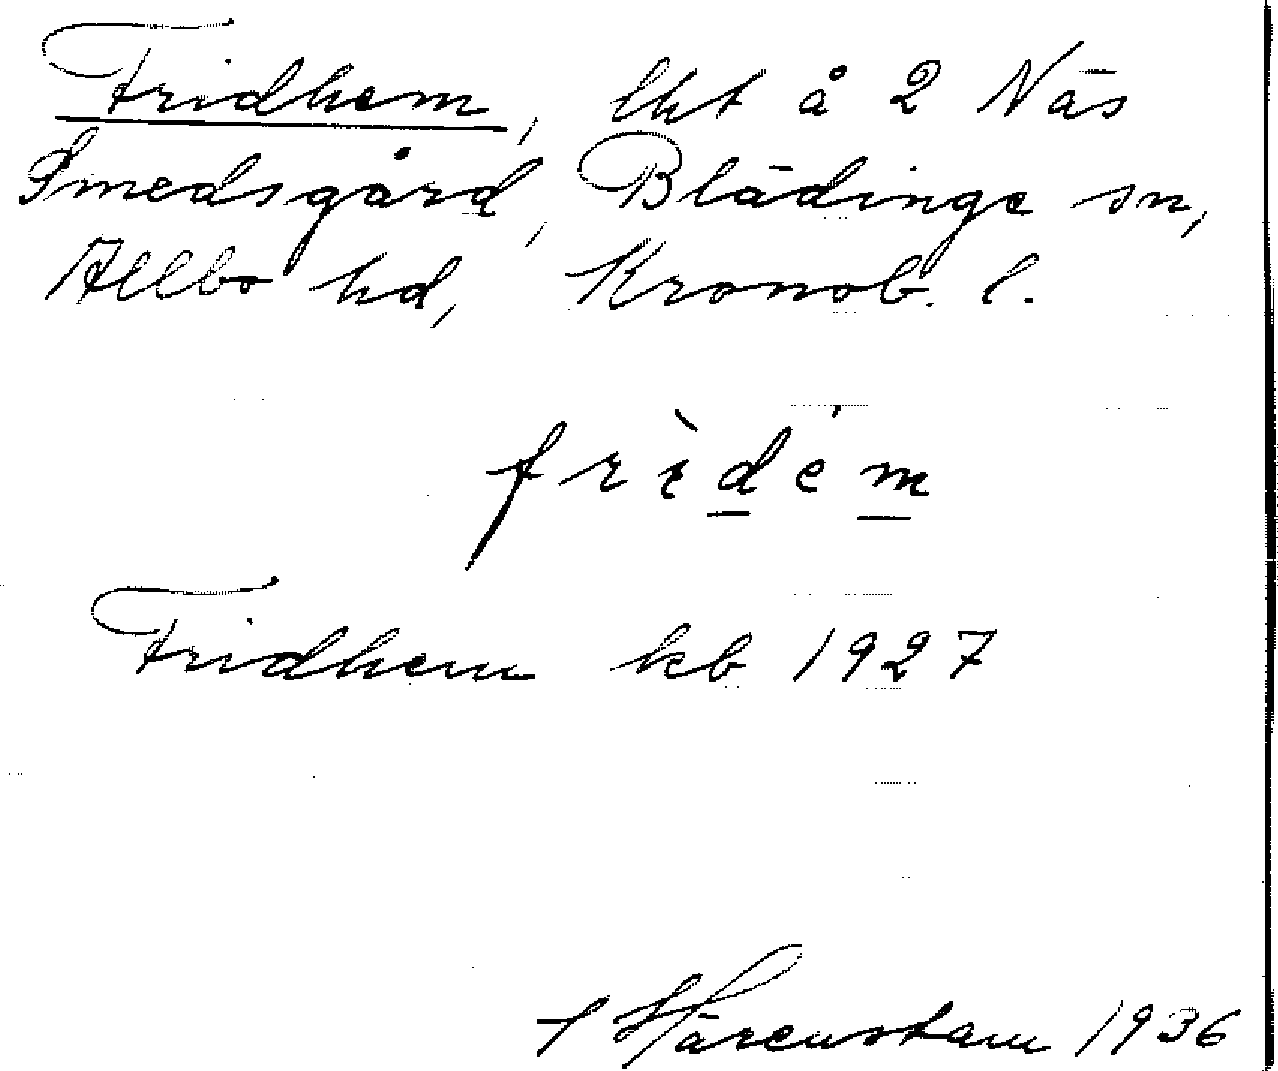 Fridhem, lht å 2 Näs
Smedsgård, Blädinge sn,
Allbo hd, Kronob. l.
frìdém
Fridhem kb 1927
Härenstam 1936